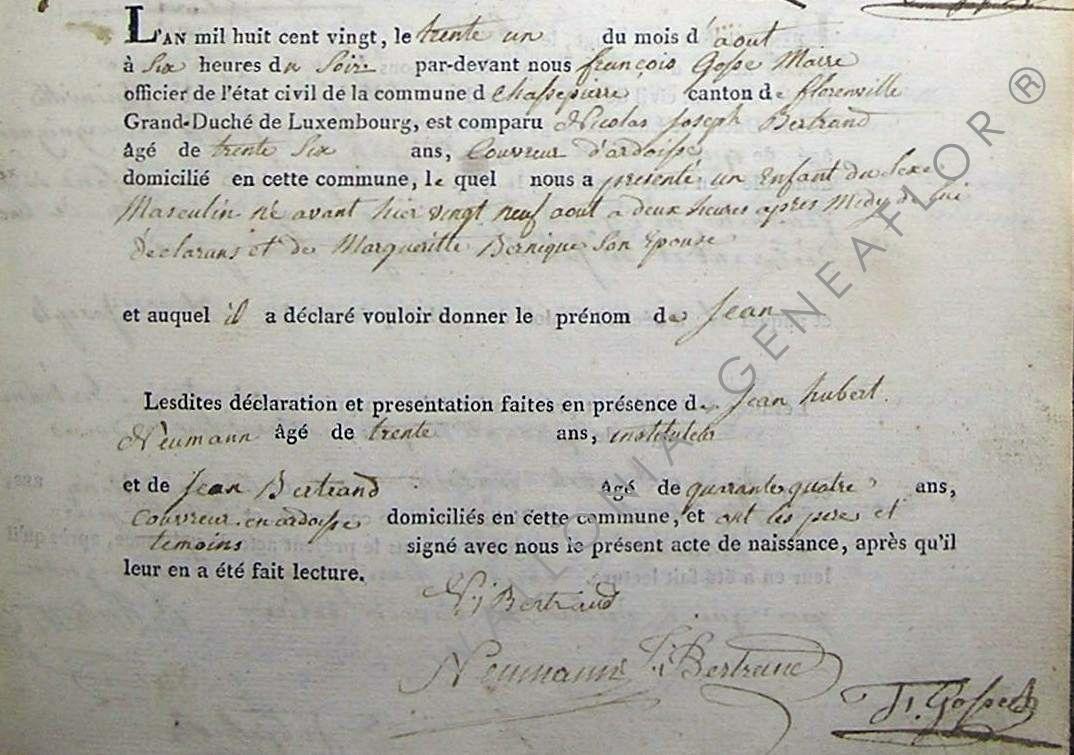 L'AN mil huit cent vingt, le trente un du mois d'aout
à Six heures du Soir par-devant nous françois Gosse Maire
officier de l'état civil de la commune d chassepierre canton de florenville
Grand-Duché de Luxembourg, est comparu Nicolas Joseph Bertrand
âgé de trente Six ans, Couvreur d'ardoisse
domicilié en cette commune, le quel nous a présenté un Enfant du Sexe
Masculin né avant hier vingt neuf aout a deux heures après Midy de lui
Déclarans et de Margueritte Bernique Son Epouse
et auquel il a déclaré vouloir donner le prénom de Jean
Lesdites déclaration et presentation faites en présence de Jean hubert
Neumann âgé de trente ans, instituteur
et de Jean Bertrand âgé de quarante quatre ans,
Couvreur en ardoisse domiciliés en cette commune, et ont les pere et
temoins signé avec nous le présent acte de naissance, après qu'il
leur en a été fait lecture.
Nj Bertrand
Neumann Bertrand
f. Gosse
GENEAFLOR ®